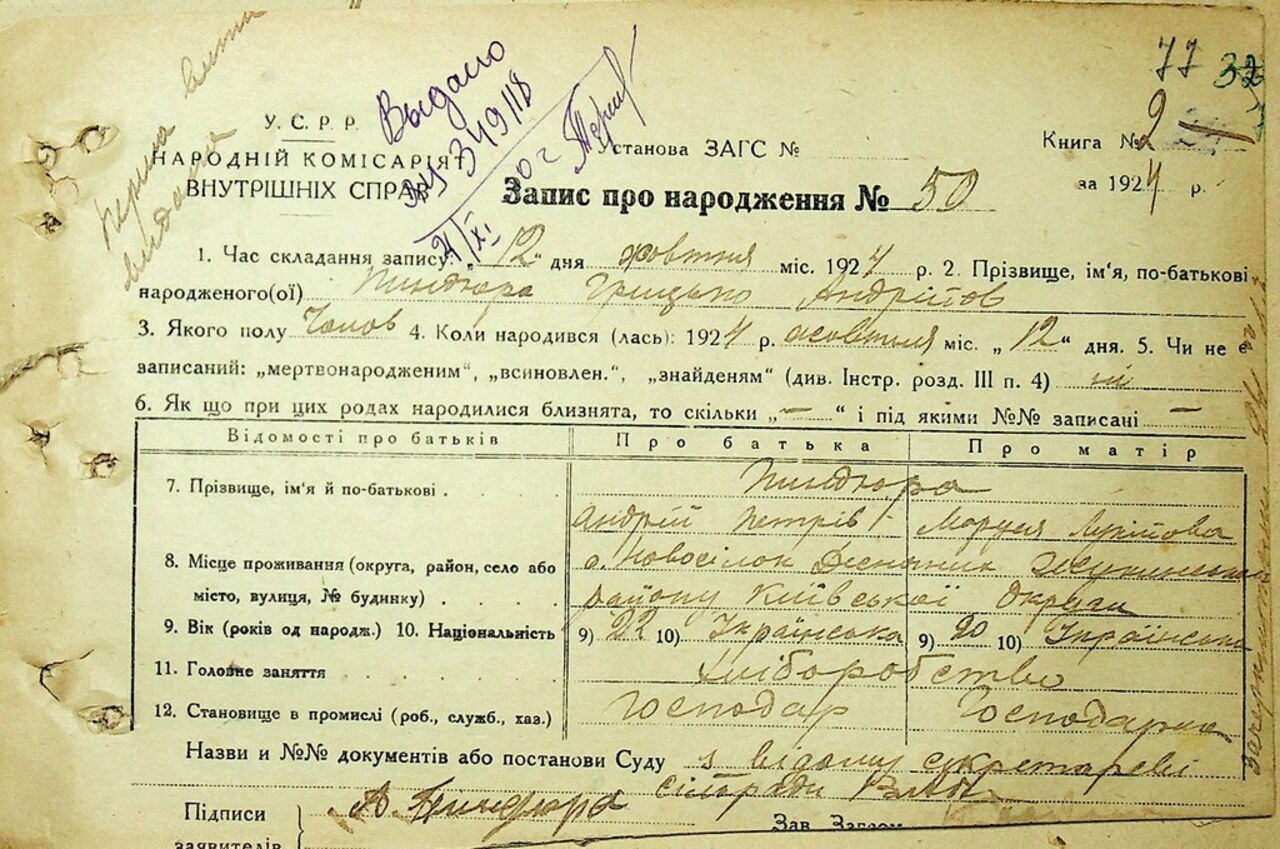 77 32
Выдано
ЗЧ 349118
У. С. Р. Р.
НАРОДНІЙ КОМІСАРІЯТ
ВНУТРІШНІХ СПРАВ
Установа ЗАГС №
Книга № 2
за 1924 р.
Запис про народження № 50
1. Час складання запису: „12“ дня жовтня міс. 1924 р. 2. Прізвище, ім'я, по-батькові
народженого(ої) Пиндюра Грицько Андрійов
3. Якого полу Чолов 4. Коли народився (лась): 1924 р. жовтня міс. „12“ дня. 5. Чи не є
записаний: „мертвонародженим“, „всиновлен.“, „знайденям“ (див. Інстр. розд. III п. 4) ні
6. Як що при цих родах народилися близнята, то скільки „—“ і під якими №№ записані —
Відомості про батьків Про батька Про матір
7. Прізвище, ім'я й по-батькові Пиндюра
Андрій Петрів Маруся
8. Місце проживання (округа, район, село або с. Новосілок
місто, вулиця, № будинку) району Київської Округи
9. Вік (років од народж.) 10. Національність 9) 22 10) Українська 9) 20 10) Українська
11. Головне заняття хліборобство
12. Становище в промислі (роб., служб., хаз.) Господар Господарка
Назви и №№ документів або постанови Суду з відому секретареві
сільради
Підписи А. Пиндюра
заявителів
Зав. Загсом